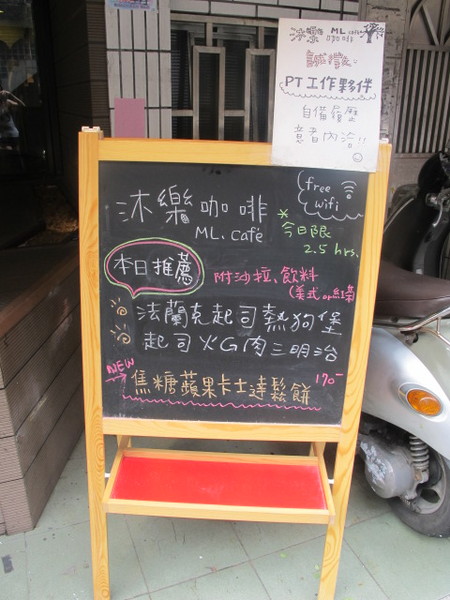 沐樂 ML café 咖啡
誠徵
PT工作夥伴
自備履歷
意者內洽!!
free
wifi
沐樂咖啡
ML. café
*今日限
2.5 hrs.
本日推薦
附沙拉、飲料
(美式 or 紅茶
法蘭克起司熱狗堡
起司火G肉三明治
NEW
170-
焦糖蘋果卡士達鬆餅